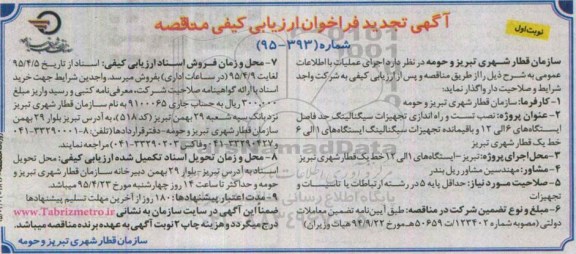 نوبت اول
آگهی تجدید فراخوان ارزیابی کیفی مناقصه
شماره (۳۹۳-۹۵)
سازمان قطار شهری تبریز و حومه در نظر دارد اجرای عملیات با اطلاعات
عمومی به شرح ذیل را از طریق مناقصه و پس از ارزیابی کیفی به شرکت واجد
شرایط و صلاحیت دار واگذار نماید:
۱- کارفرما: سازمان قطار شهری تبریز و حومه
۲- عنوان پروژه: نصب تست و راه اندازی تجهیزات سیگنالینگ حد فاصل
ایستگاه‌های ۶ الی ۱۲ و باقیمانده تجهیزات سیگنالینگ ایستگاه‌های ۱ الی ۶
خط یک قطار شهری تبریز
۳- محل اجرای پروژه: تبریز - ایستگاه‌های ۱ الی ۱۲ خط یک قطار شهری تبریز
۴- مشاور: مهندسین مشاور ریل بندر
۵- صلاحیت مورد نیاز: حداقل پایه ۵ در رشته ارتباطات یا تاسیسات و
تجهیزات
۶- مبلغ و نوع تضمین شرکت در مناقصه: طبق آیین‌نامه تضمین معاملات
دولتی (مصوبه شماره ۱۲۳۴۰۲/ت ۵۰۶۵۹ هـ مورخ ۹۴/۹/۲۲ هیات وزیران)
۷- محل و زمان فروش اسناد ارزیابی کیفی: اسناد از تاریخ ۹۵/۴/۵
لغایت ۹۵/۴/۹ (در ساعات اداری) بفروش میرسد. واجدین شرایط جهت خرید
اسناد با ارائه گواهینامه صلاحیت شرکت، معرفی‌نامه کتبی و رسید واریز مبلغ
۳۰۰،۰۰۰ ریال به حساب جاری ۹۱۰۰۰۶۵ به نام سازمان قطار شهری تبریز
نزد بانک سپه شعبه ۲۹ بهمن تبریز (کد ۵۱۸)، به آدرس تبریز بلوار ۲۹ بهمن
سازمان قطار شهری تبریز و حومه - دفتر قراردادها (تلفن: ۸-۳۳۲۹۰۰۰۱-۰۴۱
مراجعه نمایند.
۸- محل و زمان تحویل اسناد تکمیل شده ارزیابی کیفی: محل تحویل
اسناد به آدرس تبریز: بلوار ۲۹ بهمن دبیرخانه سازمان قطار شهری تبریز و
حومه و حداکثر تا ساعت ۱۴ روز چهارشنبه مورخ ۹۵/۴/۲۳ میباشد.
۹- مدت اعتبار پیشنهادها: ۱۸۰ روز از آخرین مهلت تسلیم پیشنهادها
ضمناً این آگهی در سایت سازمان به نشانی www.Tabrizmetro.ir
درج میگردد و هزینه چاپ ۲ نوبت آگهی به عهده برنده مناقصه میباشد.
سازمان قطار شهری تبریز و حومه